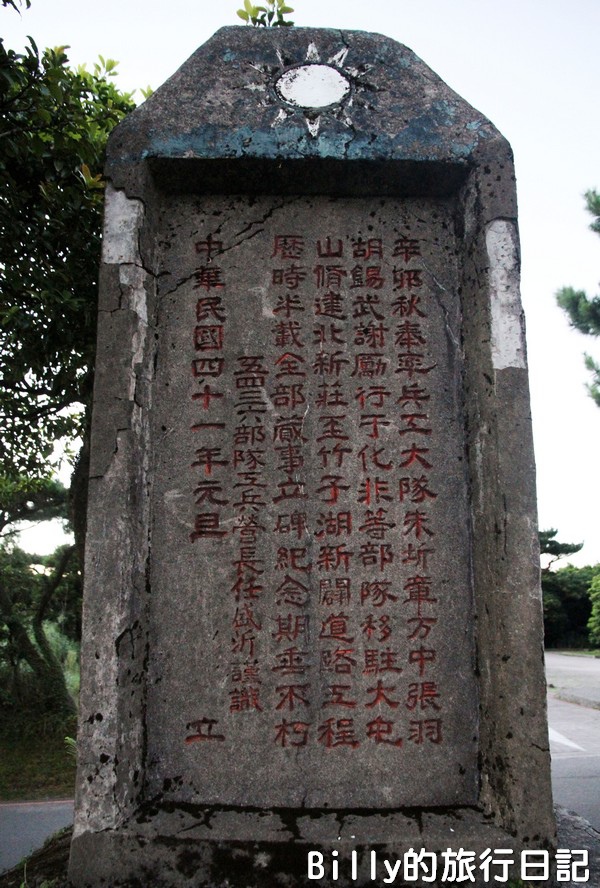 辛卯秋奉率兵工大隊朱圻章方中張羽
胡錫武謝勵行于化非等部隊移駐大屯
山脩建北新莊至竹子湖新闢道路工程
歷時半載全部蕆事立碑紀念期垂不朽
五四三六部隊工兵營長任盛沂謹識
中華民國四十一年元旦 立
Billy的旅行日記